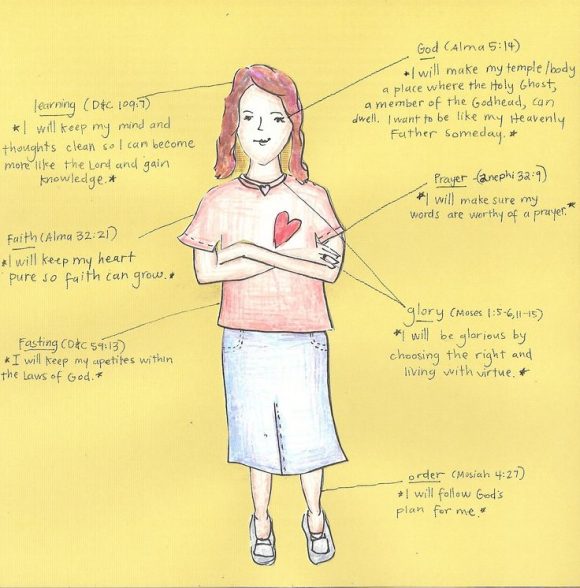 learning (D&C 109:7)
*I will keep my mind and
thoughts clean so I can become
more like the Lord and gain
knowledge.*
Faith (Alma 32:21)
*I will keep my heart
pure so faith can grow.*
Fasting (D&C 59:13)
*I will keep my apetites within
the Laws of God.*
God (Alma 5:14)
*I will make my temple/body
a place where the Holy Ghost,
a member of the Godhead, can
dwell. I want to be like my Heavenly
Father someday.*
Prayer (2nephi 32:9)
*I will make sure my
words are worthy of a prayer.*
glory (Moses 1:5-6,11-15)
*I will be glorious by
choosing the right and
living with virtue.*
order (Mosiah 4:27)
*I will follow God's
plan for me.*